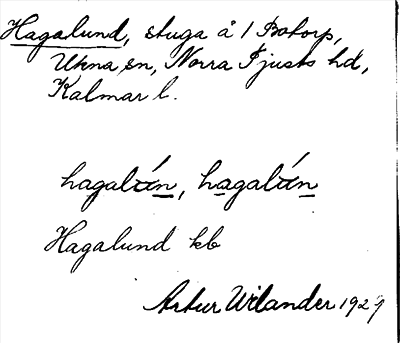 Hagalund, stuga å 1 Botorp,
Ukna sn, Norra Tjusts hd,
Kalmar l.
hagalún, hagalún
Hagalund kb
Artur Wilander 1929